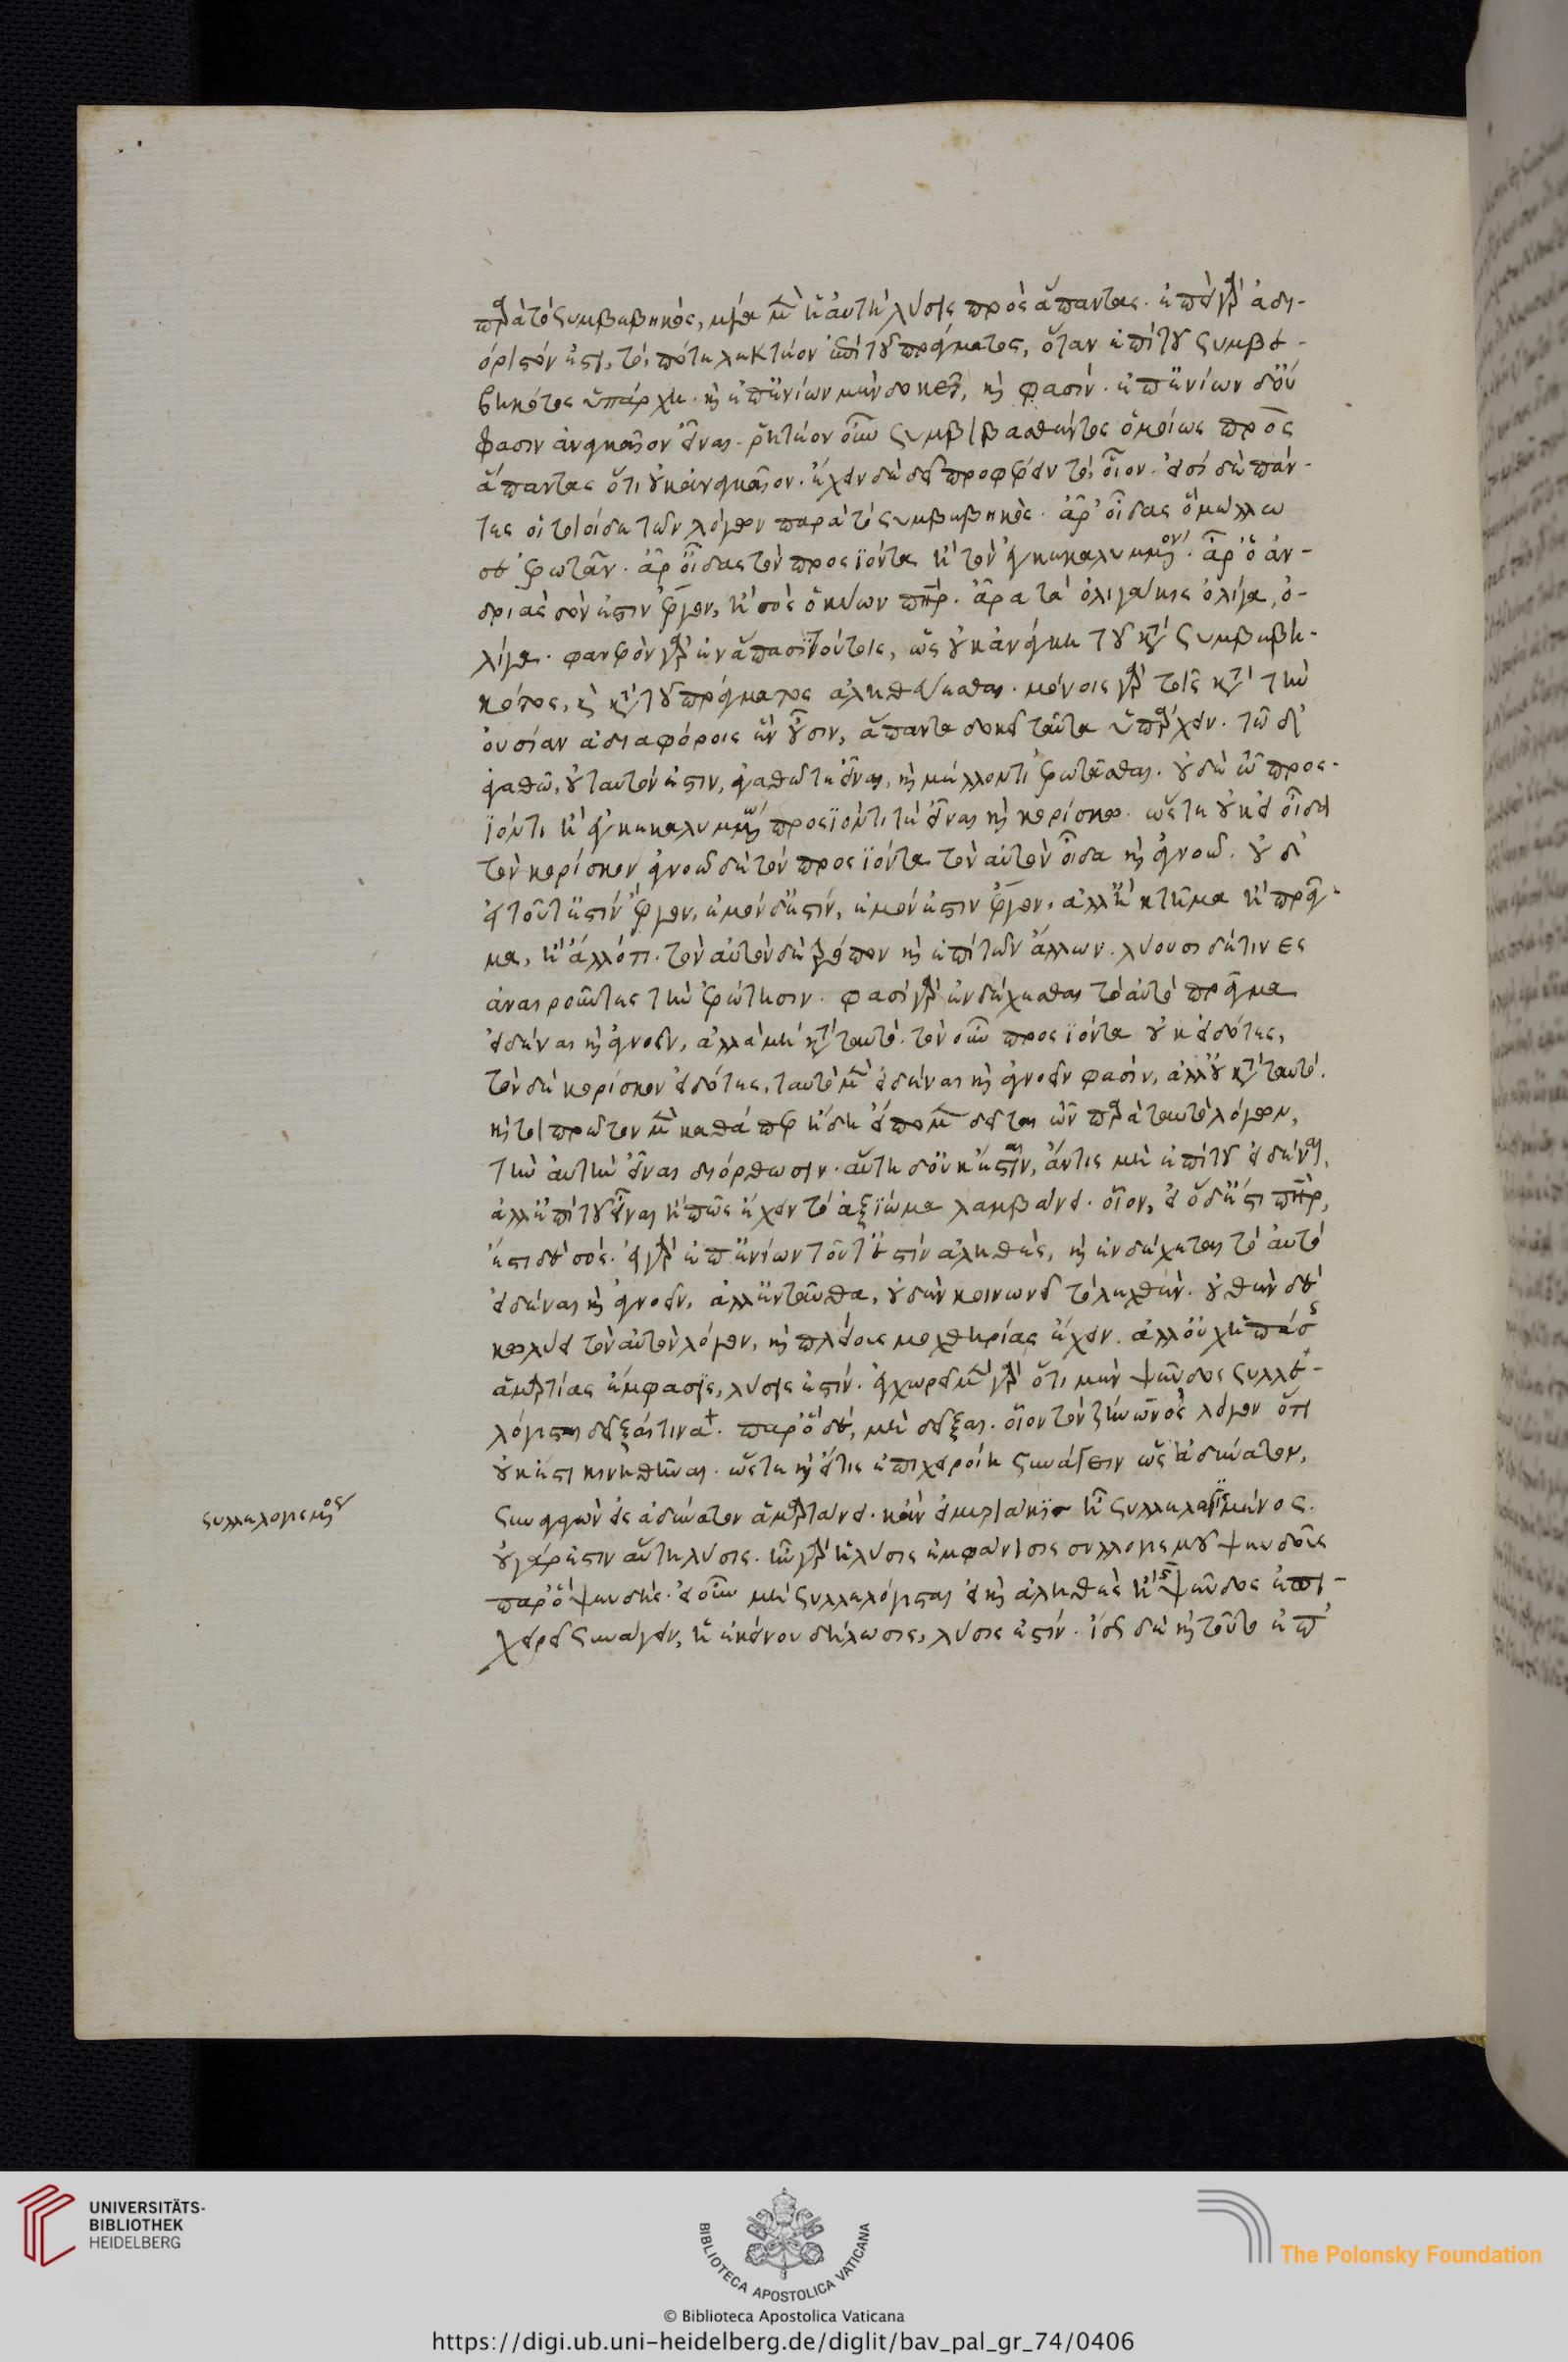 παρὰ τὸ συμβεβηκὸς, μία μὲν ἡ αὐτὴ λύσις πρὸς ἅπαντας. ἐπεὶ γὰρ ἀδι-
όριστόν ἐστι, τὸ, πότε λεκτέον ἐπὶ τοῦ πράγματος, ὅταν ἐπὶ τοῦ συμβε-
βηκότος ὑπάρχη. καὶ ἐπ' ἐνίων μὲν δοκεῖ, καὶ φασίν. ἐπ' ἐνίων δ' οὔ
φασιν ἀναγκαῖον εἶναι. ῥητέον οὖν συμβιβασθέντος ὁμοίως πρὸς
ἅπαντας ὅτι οὐκ ἀναγκαῖον. ἔχειν δὲ δεῖ προφέρειν τὸ, οἷον. εἰσὶ δὲ πάν-
τες οἱ τοιοίδε τῶν λόγων παρὰ τὸ συμβεβηκός. ἆρ' οἶδας ὃ μέλλω
σε ἐρωτᾶν. ἆρ' οἶδας τὸν προσϊόντα ἢ τὸν ἐγκεκαλυμμένον. ἆρ' ὁ ἀν-
δριὰς σόν ἐστιν ἔργον, ἢ σὸς ὁ κύων πατήρ. ἆρα τὰ ὀλιγάκις ὀλίγα, ὀ-
λίγα. φανερὸν γὰρ ἐν ἅπασϊ τούτοις, ὡς οὐκ ἀνάγκη τοῦ κατὰ συμβεβη-
κότος, καὶ κατὰ τοῦ πράγματος ἀληθεύεσθαι. μόνοις γὰρ τοῖς κατὰ τὴν
οὐσίαν ἀδιαφόροις ἓν οὖσιν, ἅπαντα δοκεῖ ταῦτα ὑπάρχειν. τῶ δ'
ἀγαθῶ, οὐ ταυτόν ἐστιν, ἀγαθῶ τε εἶναι, καὶ μέλλοντι ἐρωτᾶσθαι. οὐδὲ τῶ προσ-
ϊόντι ἢ ἐγκεκαλυμμένω προσϊόντι τὲ εἶναι καὶ κορίσκω. ὥστε οὐκ εἰ οἶδα
τὸν κορίσκον ἀγνοῶ δὲ τὸν προσϊόντα τὸν αὐτὸν οἶδα καὶ ἀγνοῶ. οὐδ'
εἰ τοῦτ' ἐστὶν ἔργον, ἐμὸν δ' ἐστίν, ἐμόν ἐστιν ἔργον, ἀλλ' ἢ κτῆμα ἢ πρᾶγ-
μα, ἢ ἄλλό τι. τὸν αὐτὸν δὲ τρόπον καὶ ἐπὶ τῶν ἄλλων. λύουσι δέ τινες
ἀναιροῦντες τὴν ἐρώτησιν. φασὶ γὰρ ἐνδέχεσθαι τὸ αὐτὸ πρᾶγμα
εἰδέναι καὶ ἀγνοεῖν, ἀλλὰ μὴ κατὰ ταυτό. τὸν οὖν προσϊόντα οὐκ εἰδότες,
τὸν δὲ κορίσκον εἰδότες, ταυτὸ μὲν εἰδέναι καὶ ἀγνοεῖν φασίν, ἀλλ' οὐ κατὰ ταυτό.
καίτοι πρῶτον μὲν καθάπερ ἤδη εἴπομεν δεῖ τῶν παρὰ ταυτὸ λόγων,
τὴν αὐτὴν εἶναι διόρθωσιν. αὕτη δ' οὐκ ἔσται, ἄν τις μὴ ἐπὶ τοῦ εἰδέναι,
ἀλλ' ἐπὶ τοῦ εἶναι ἢ πῶς ἔχειν τὸ ἀξϊωμα λαμβάνει. οἷον, εἰ ὅδ' ἐστὶ πατήρ,
ἔστι δὲ σός. εἰ γὰρ ἐπ' ἐνίων τοῦτ' ἐστὶν ἀληθὲς, καὶ ἐνδέχεται τὸ αὐτὸ
εἰδέναι καὶ ἀγνοεῖν, ἀλλ' ἐνταῦθα, οὐδὲν κοινωνεῖ τὸ λεχθέν. οὐθὲν δὲ
κωλύει τὸν αὐτὸν λόγον, καὶ πλείους μοχθηρίας ἔχειν. ἀλλ' οὐχ ἡ πάσης
ἁμαρτίας ἔμφασϊς, λύσις ἐστίν. ἐγχωρεῖ μὲν γὰρ ὅτι μὲν ψεῦδος συλλε-
λόγισται δεῖξαί τινα. παρ' ὃ δὲ, μὴ δεῖξαι. οἷον τὸν ζήνωνος λόγον ὅτι
οὐκ ἔστι κινηθῆναι. ὥστε καὶ εἴ τις ἐπιχειροίη συνάγειν ὡς ἀδύνατον,
συναγαγὼν εἰς ἀδύνατον ἁμαρτάνει. κἂν εἰ μυριάκϊς ἦ συλλελογισμένος.
οὐ γάρ ἐστιν αὕτη λύσις. ἦν γὰρ ἡ λύσις ἐμφάνισις συλλογισμοῦ ψευδοῦς
παρ' ὃ ψευδής. εἰ οὖν μὴ συλλελόγισται εἰ καὶ ἀληθὲς ἢ ψεῦδος ἐπι-
χειρεῖ συνάγειν, ἡ ἐκείνου δήλωσις, λύσις ἐστίν. ἴσως δὲ καὶ τοῦτο ἐπ'
συλλελογισμένος
UNIVERSITÄTS-
BIBLIOTHEK
HEIDELBERG
BIBLIOTECA APOSTOLICA VATICANA
© Biblioteca Apostolica Vaticana
The Polonsky Foundation
https://digi.ub.uni-heidelberg.de/diglit/bav_pal_gr_74/0406